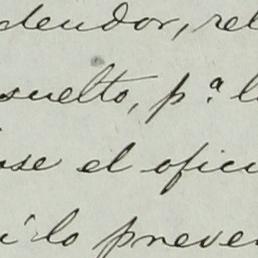 dendor, rel
suelto, pª l
ose el ofici
í lo preven